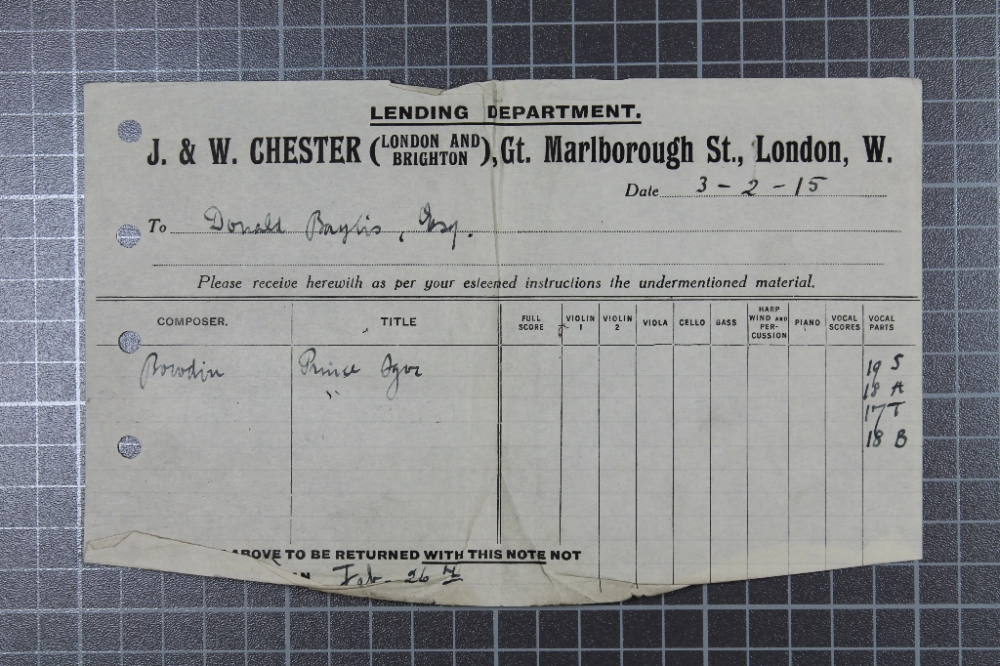 LENDING DEPARTMENT.
J. & W. CHESTER (LONDON AND BRIGHTON), Gt. Marlborough St., London, W.
Date 3 - 2 - 15
To Donald Baylis, Esq.
Please receive herewith as per your esteemed instructions the undermentioned material.
COMPOSER. TITLE FULL SCORE VIOLIN 1 VIOLIN 2 VIOLA CELLO BASS HARP WIND AND PERCUSSION PIANO VOCAL SCORES VOCAL PARTS
Borodin Prince Igor 19 S
" 18 A
17 T
18 B
ABOVE TO BE RETURNED WITH THIS NOTE NOT
Feb. 26th